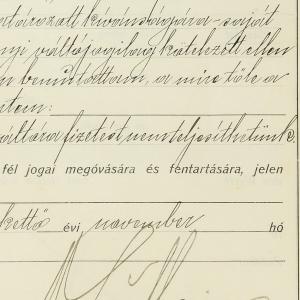 határozott kívánságára - saját
nyi váltójogilag kötelezett ellen
n bemutattam, a mire tőle a
ntem:
váltóra fizetést nem teljesíthetünk.
fél jogai megóvására és fentartására, jelen
kettő évi november hó